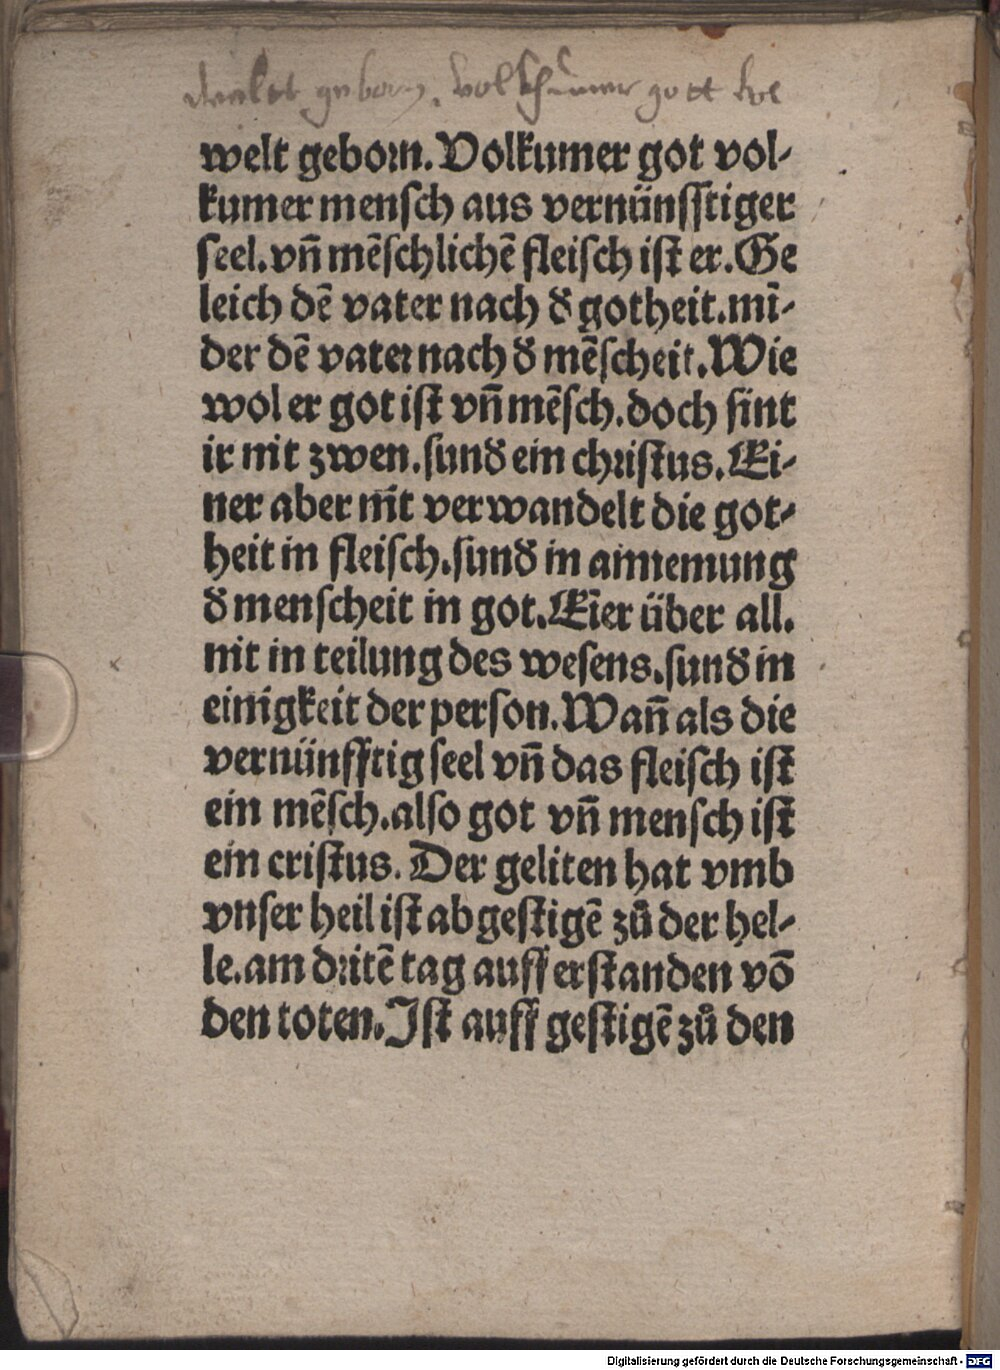 geborn. volkhumer gott vol
welt geborn. Volkumer got vol-
kumer mensch aus vernünfftiger
seel. vñ mẽschlichẽ fleisch ist er. Ge
leich dẽ vater nach ð gotheit. mĩ-
der dẽ vater nach ð mẽscheit. Wie
wol er got ist vñ mẽsch. doch sint
ir nit zwen. sunð ein christus. Ei-
ner aber nit verwandelt die got-
heit in fleisch. sunð in annemung
ð menscheit in got. Eĩer über all.
nit in teilung des wesens. sunð in
einigkeit der person. Wañ als die
vernünfftig seel vñ das fleisch ist
ein mẽsch. also got vñ mensch ist
ein cristus. Der geliten hat vmb
vnser heil ist abgestigẽ zů der hel-
le. am dritẽ tag auff erstanden võ
den toten. Ist auff gestigẽ zů den
Digitalisierung gefördert durch die Deutsche Forschungsgemeinschaft - DFG